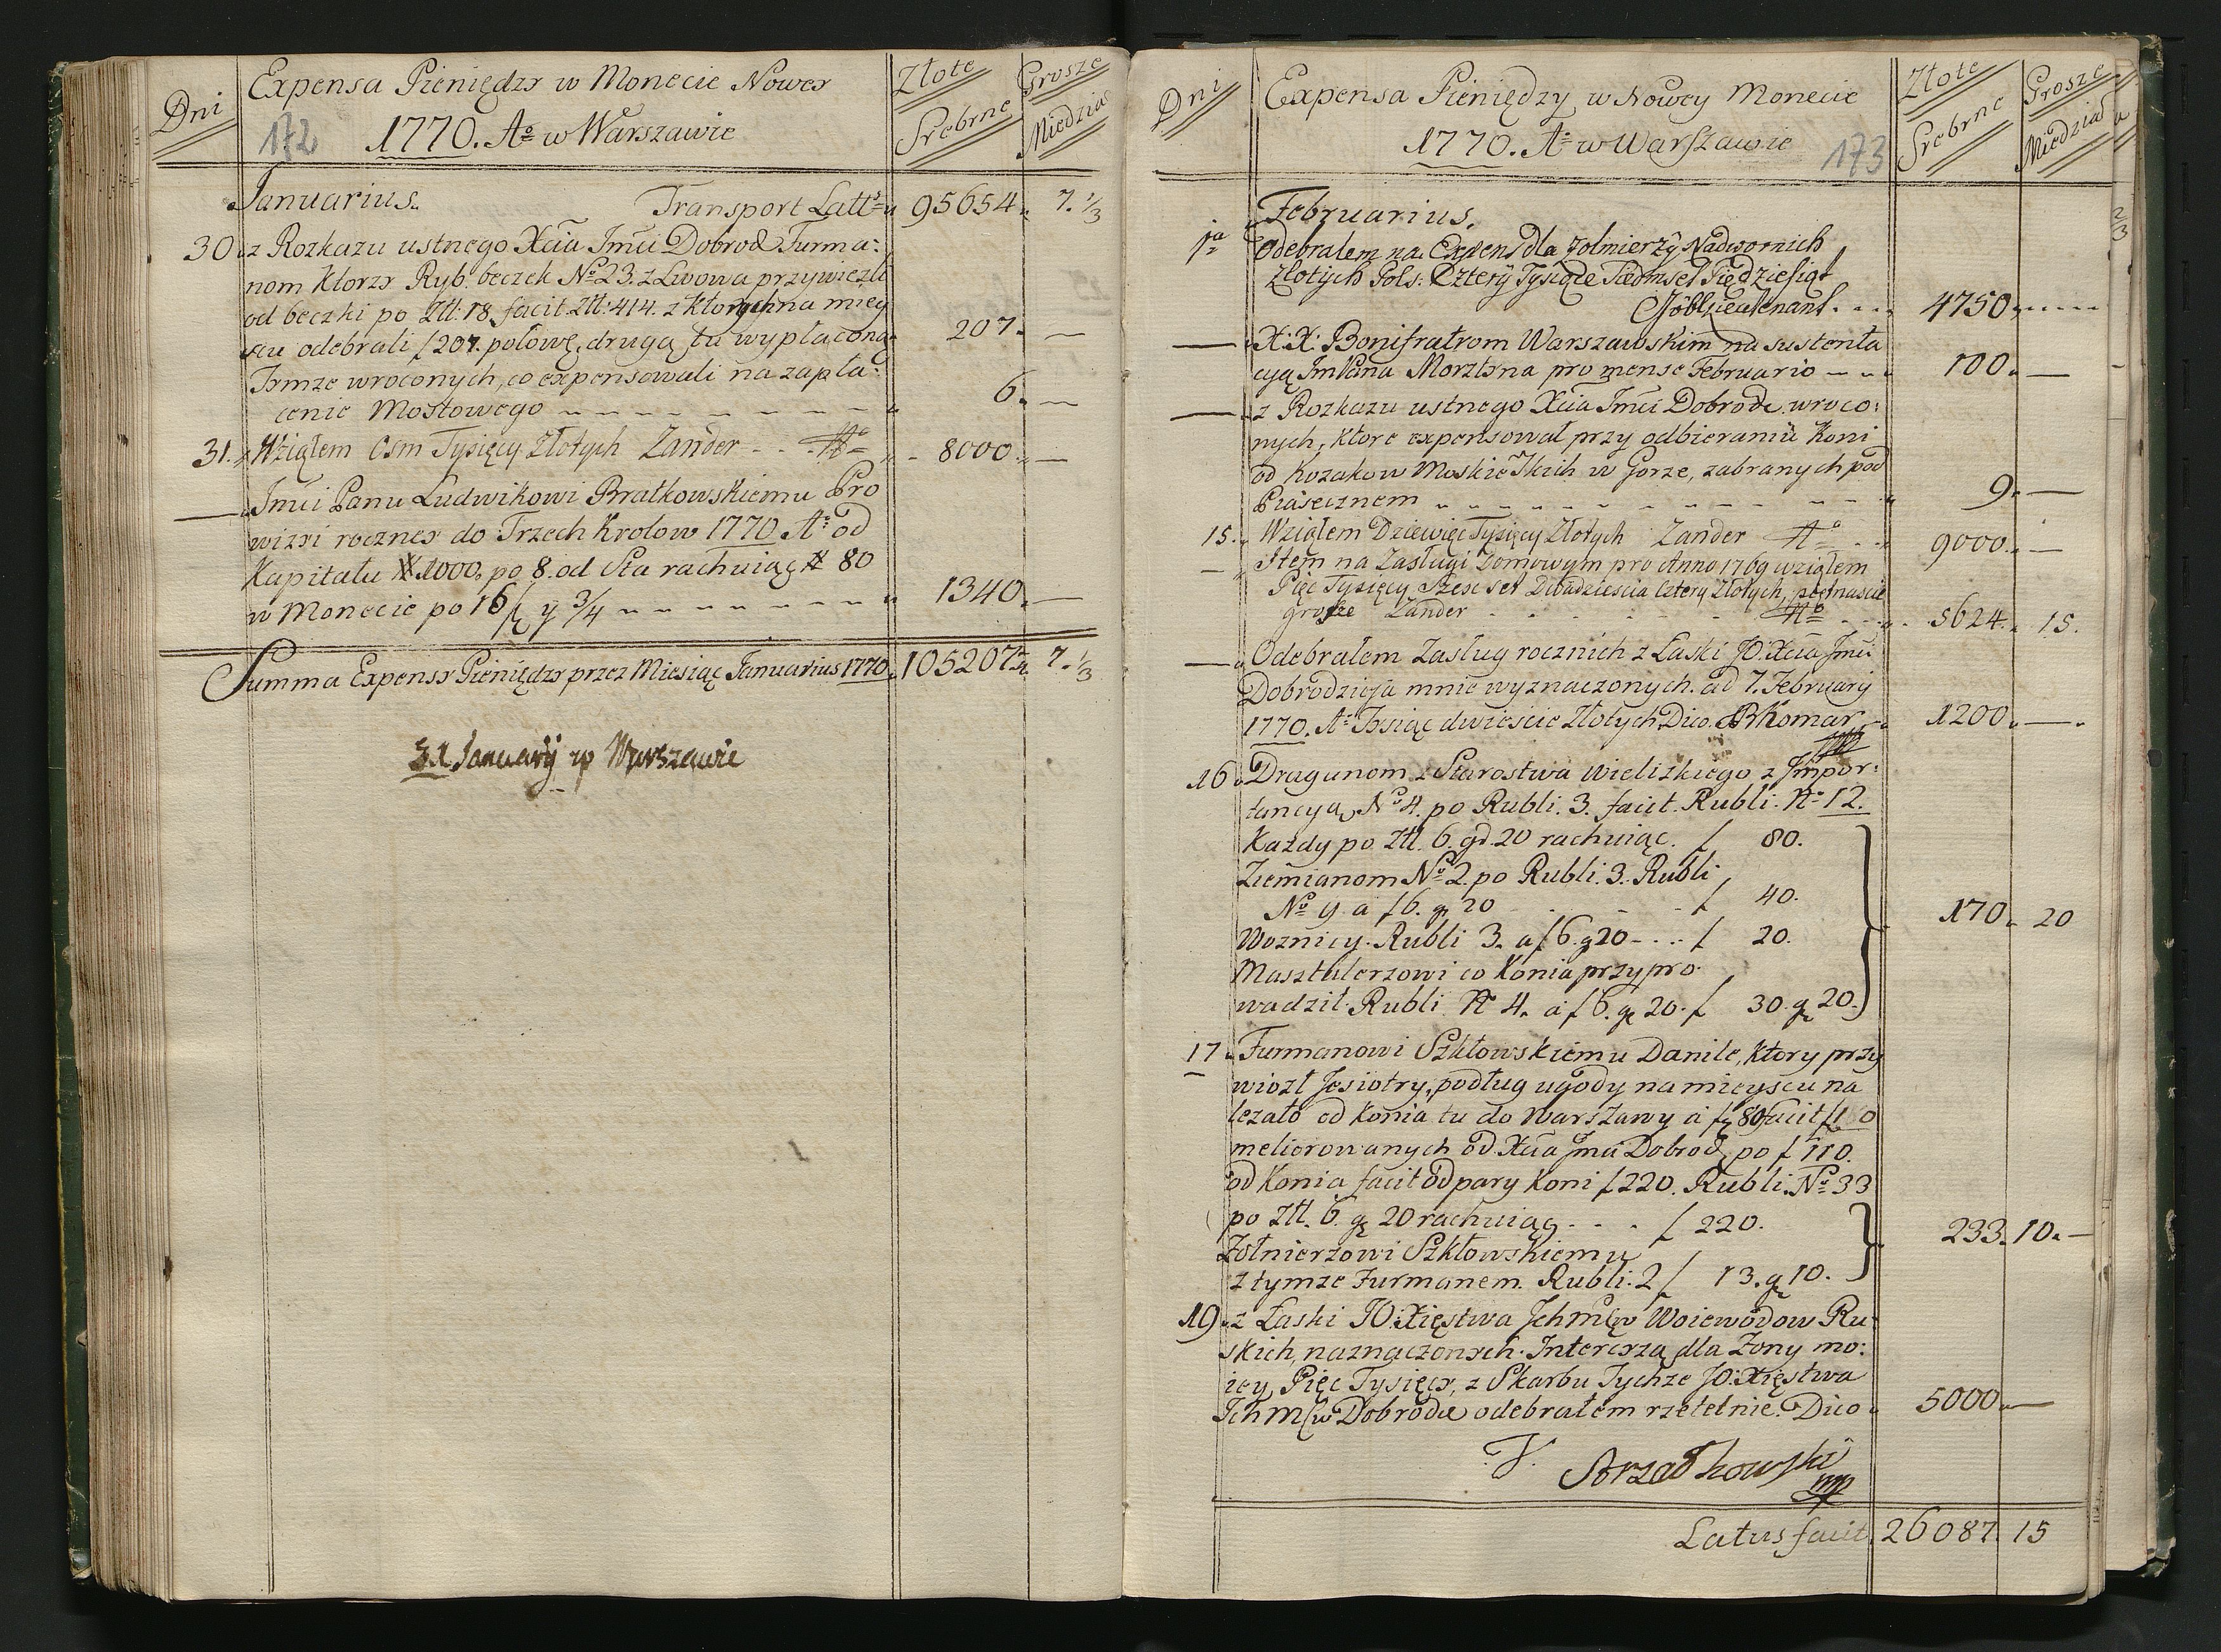 Dni
Expensa Pieniędzy w Monecie Nowey
1770. Ao w Warszawie
172
Złote Srebrne
Grosze Miedzia
Januarius. Transport Latt 95654 7. 1/3
30 z Rozkazu ustnego Xcia Jmci Dobrod Furma:
nom Ktorzy Ryb. beczek No 23. z Lwowa przywiezli
od beczki po Ztt: 18. facit. Ztt: 414. z Ktorych na miey
scu odebrali f 207. połowę, drugą tu wypłacono 207. —
Tymze wroconych, co expensowali na zapła:
cenie Mostowego 6. —
31. Wziąłem Osm Tysięcy Złotych Zander 8000. —
— Jmci Panu Ludwikowi Bratkowskiemu Pro
wizyi roczney do Trzech Krolow 1770. Ao od
Kapitału # 1000. po 8. od Sta rachuiąc # 80
w Monecie po 16 f y 3/4 1340. —
Summa Expensy Pieniędzy przez Miesiąc Januarius 1770. 105207. 7. 1/3
31 January w Warszawie
Dni
Expensa Pieniędzy w Nowey Monecie
1770. Ao w Warszawie
173
Złote Srebrne
Grosze Miedzia
Februarius.
1a Odebralem na Expens dla Zolnierzÿ Nadwornich
Złotÿch Pols: Czterÿ Tysiące Siedmset Piędziesiąt
4750
— X:X: Bonifratrom Warszawskim na sustenta
cyą Im Pana Morztyna pro mense Februario 100. —
— z Rozkazu ustnego Xcia Jmci Dobrodz. wroco:
nych, Ktore expensował przy odbieraniu Koni
od Kozakow Moskiewskich w Gorze, zabranych pod
Piasecznem 9. —
15. Wziąłem Dziewięc Tysięcy Złotych Zander 9000. —
— Item na Zasługi Domowym pro Anno 1769 wziąłem
Pięc Tysięcy Szesc set Dwadziescia Cztery Złotych, piętnascie
grosze Zander 5624. 15.
— Odebrałem Zasług rocznich z Łaski JO: Xcia Jmci
Dobrodzieja mnie wyznaczonych. ad 1. February
1770. Ao Tysiąc dwiescie Złotych Dico. Komar 1200. —
16 Dragunom z Starostwa Wieliskiego z Impor:
tancyą, No 4. po Rubli. 3. facit. Rubli. No 12.
Kazdy po Ztt. 6. gr. 20 rachuiąc. f 80.
Ziemianom No 2. po Rubli. 3. Rubli
No 6 a f 6. gr 20 f 40.
170. 20
Woznicy. Rubli 3. a f 6. gr 20 f 20.
Masztalerzowi co Konia przypro
wadził. Rubli No 4. a f 6. gr 20. f 30. gr 20.
17 Furmanowi Szkłowskiemu Danile, Ktory przy
wiozł Jesiotry, podług ugody na mieyscu na
lezało od Konia tu do Warszawy a f 80 facit f 160
meliorowanych od Xcia Jmci Dobrodz po f 110.
od Konia facit od pary Koni f 220. Rubli. No 33
po Ztt. 6. gr 20 rachuiąc f 220.
233. 10. —
Zołnierzowi Szkłowskiemu
z tymze Furmanem. Rubli. 2 f 13. gr 10.
19. z Łaski JO: Xięstwa Ichmciow Woiewodow Ru
skich, naznaczonych. Intercyzą dla Zony mo:
iey, Pięc Tysięcy, z Skarbu Tychze JO: Xięstwa
Ichmciow Dobrodz odebrałem rzetelnie. Dico 5000. —
Latus facit 26087. 15